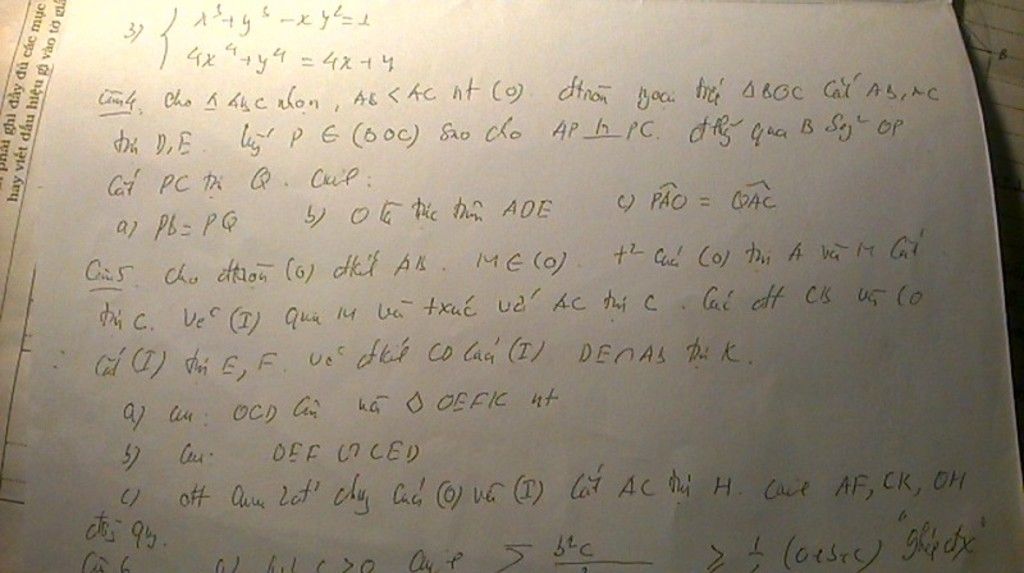 phải ghi đầy đủ các mục
hay viết dấu hiệu gì vào tờ giấ
3) { x³ + y³ - xy² = 1
4x⁴ + y⁴ = 4x + y
Câu 4. Cho Δ ABC nhọn, AB < AC nt (O). đtròn ngoại tiếp ΔBOC cắt AB, AC
tại D, E. Lấy P ∈ (BOC) sao cho AP ⊥ PC. đthg qua B sog² OP
cắt PC tại Q. Cm:
a) PB = PQ b) O là trực tâm ADE c) PAO = QAC
Câu 5. Cho đtròn (O) đkính AB. M ∈ (O). t² của (O) tại A và M cắt
tại C. Vẽ (I) qua M và txúc với AC tại C. Các đt CB và CO
cắt (I) tại E, F. Vẽ đkính CD của (I) DE ∩ AB tại K.
a) cm: OCD cân và OEFK nt
b) cm: OEF ∽ CED
c) đt chứa của (O) và (I) cắt AC tại H. AF, CK, OH
đồng quy.
Câu 6 > 0 Σ b²c ≥ (a+b+c) "ghép đx"